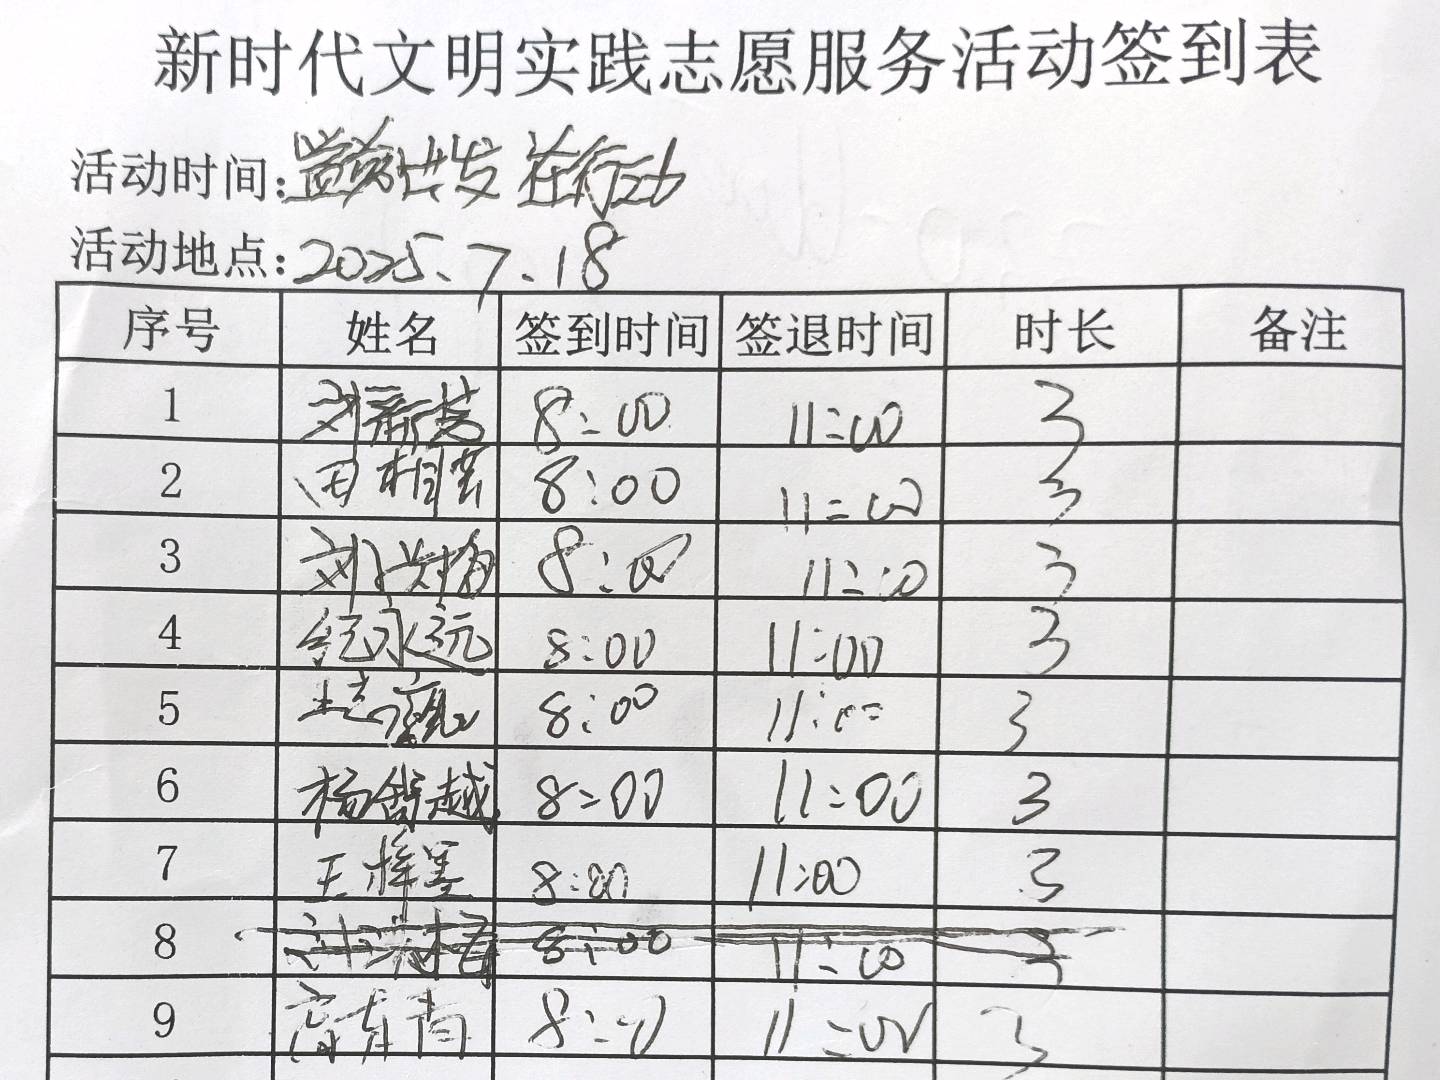 新时代文明实践志愿服务活动签到表
活动时间: 在行动
活动地点: 2025.7.18
序号 姓名 签到时间 签退时间 时长 备注
1 刘新芳 8:00 11:00 3
2 田相芸 8:00 11:00 3
3 刘兴梅 8:00 11:00 3
4 纪永远 8:00 11:00 3
5 8:00 11:00 3
6 杨舒越 8:00 11:00 3
7 王梓墨 8:00 11:00 3
8 8:00 11:00 3
9 8:00 11:00 3